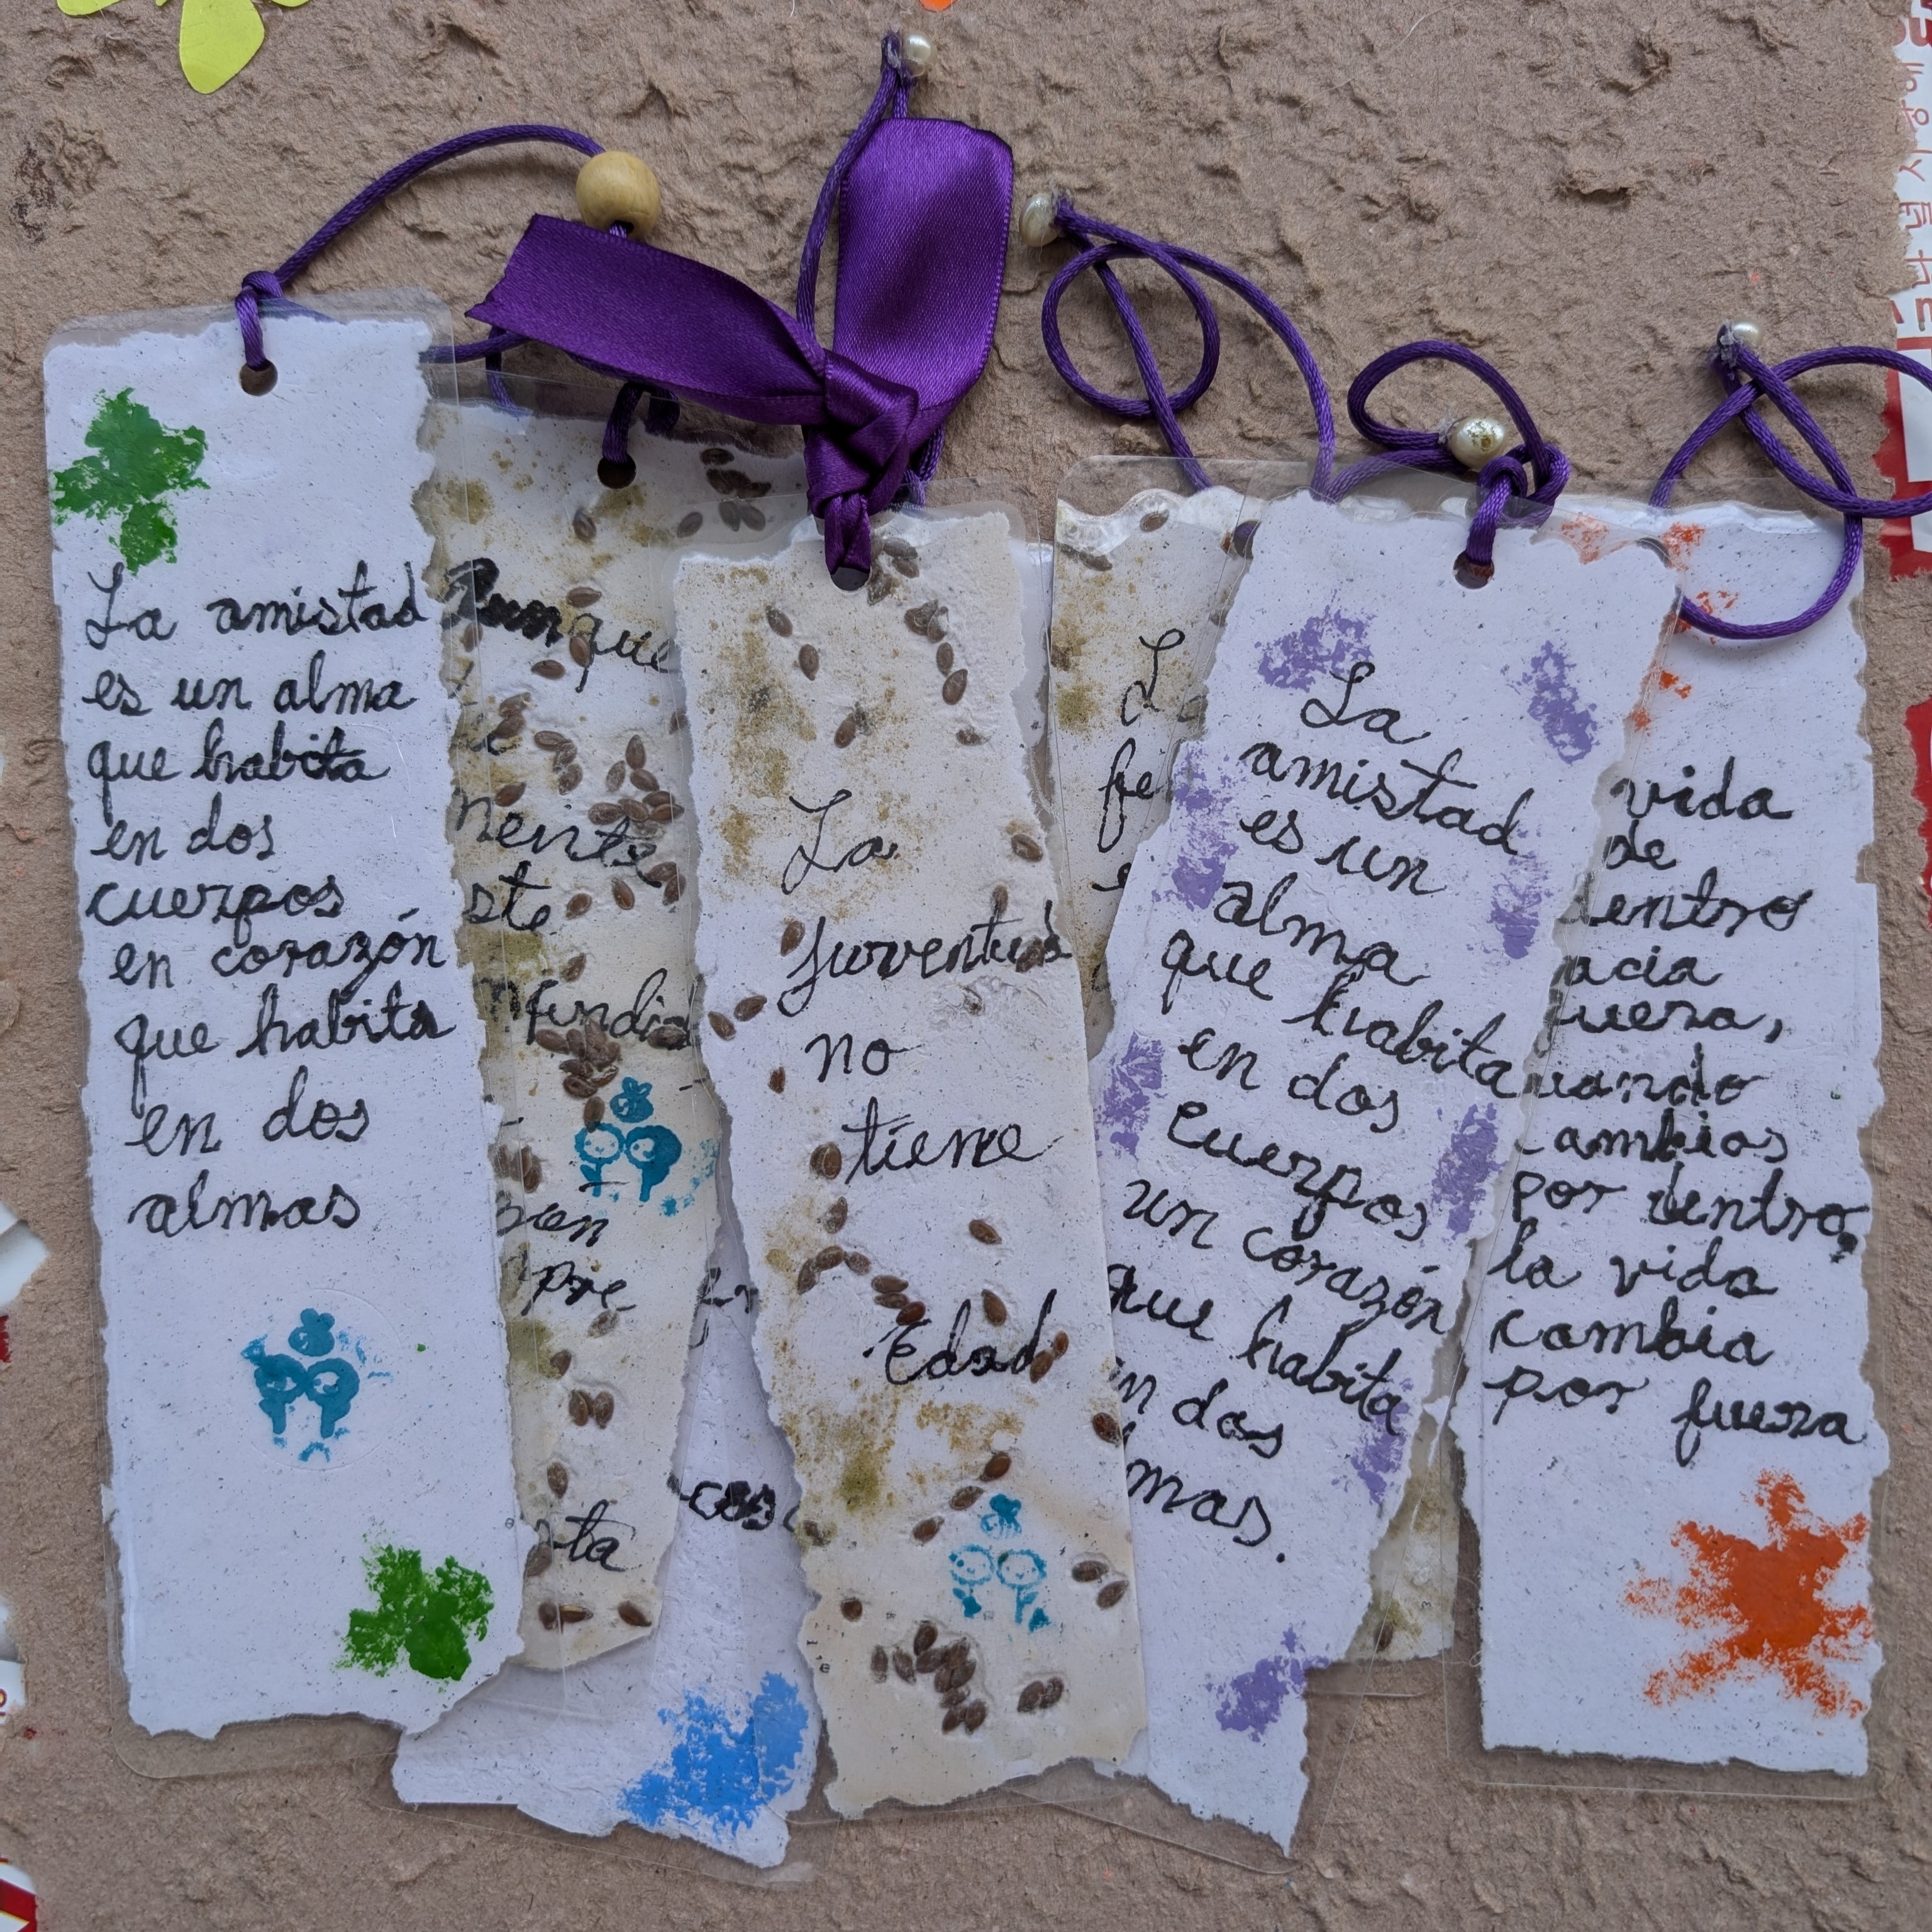 La amistad
es un alma
que habita
en dos
cuerpos
en corazón
que habita
en dos
almas
Aunque
nente
ste
nfundid
pre
ta
cos
La
Juventud
no
tiene
Edad
La
fe
La
amistad
es un
alma
que habita
en dos
cuerpos
un corazón
que habita
en dos
lmas.
vida
de
dentro
acia
uera,
uando
cambias
por dentro,
la vida
cambia
por fuera